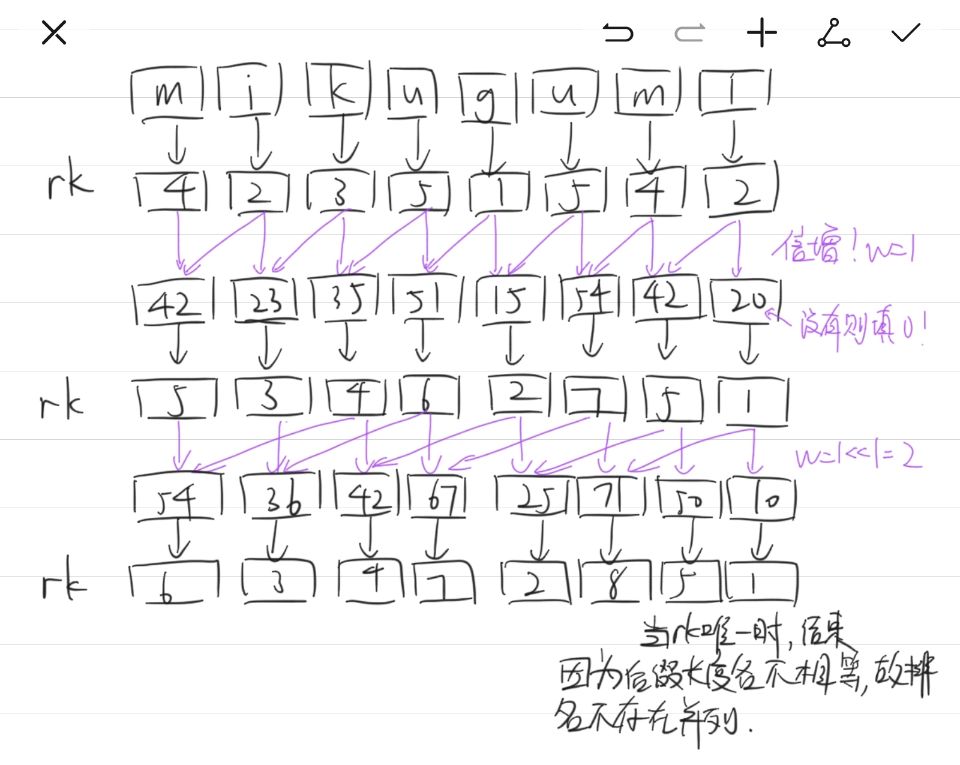 m i k u g u m i
rk 4 2 3 5 1 5 4 2
倍增！w=1
42 23 35 51 15 54 42 20
没有则填0！
rk 5 3 4 6 2 7 5 1
w=1<<1=2
54 36 42 67 25 71 50 10
rk 6 3 4 7 2 8 5 1
当rk唯一时，结束
因为后缀长度各不相等，故排
名不存在并列．